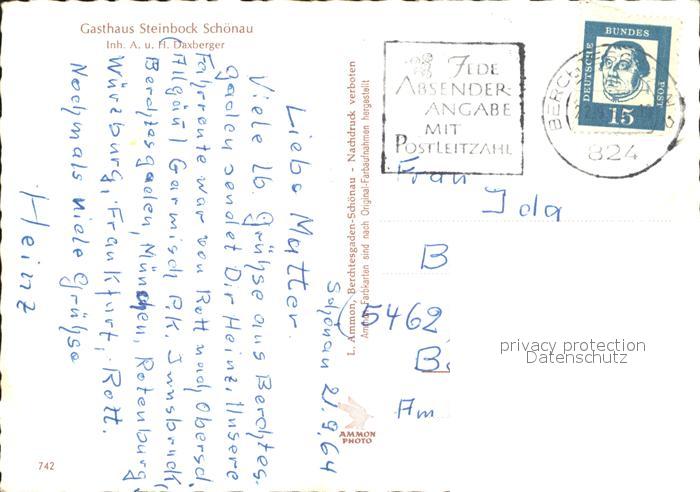 Gasthaus Steinbock Schönau
Inh. A. u. H. Daxberger
Schönau 21.9.64
Liebe Mutter.
Viele lb. Grühse aus Berchtes.
gaden sendet Dir Heinz. Unsere
Fahrrente war von Rott nach Obersd.
(Allgäu) Garmisch PK. Innsbruck,
Berchtesgaden, München, Rotenburg,
Würzburg, Frankfurt, Rott.
Nochmals viele Grühse
Heinz
742
L. Ammon, Berchtesgaden-Schönau - Nachdruck verboten
Ammon Farbkarten sind nach Original-Farbaufnahmen hergestellt
AMMON
PHOTO
JEDE
ABSENDER-
ANGABE
MIT
POSTLEITZAHL
824
DEUTSCHE
BUNDES
POST
15
Frau
Ida
B
5462
B.
Am
privacy protection
Datenschutz